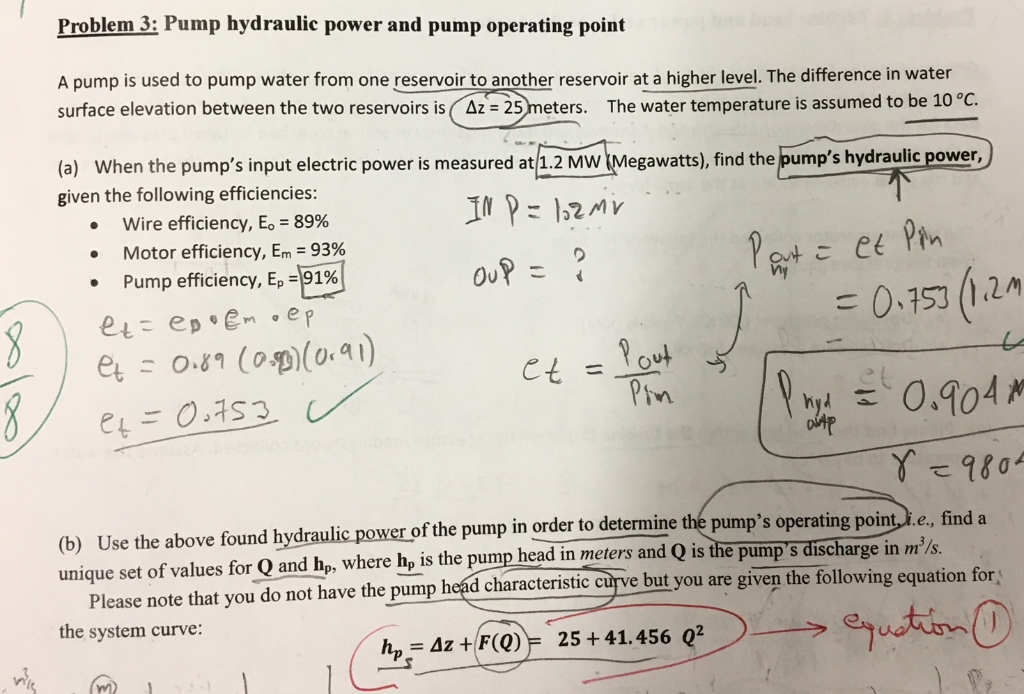 Problem 3: Pump hydraulic power and pump operating point
A pump is used to pump water from one reservoir to another reservoir at a higher level. The difference in water
surface elevation between the two reservoirs is Δz = 25 meters. The water temperature is assumed to be 10 °C.
(a) When the pump's input electric power is measured at 1.2 MW (Megawatts), find the pump's hydraulic power,
given the following efficiencies:
• Wire efficiency, Eₒ = 89%
• Motor efficiency, Eₘ = 93%
• Pump efficiency, Eₚ = 91%
IN P = 1.2 MW
OUP = ?
e_t = e_o · e_m · e_p
e_t = 0.89 (0.93)(0.91)
e_t = 0.753
e_t = Pout / Pin
P out hy = e_t Pin
= 0.753 (1.2M
P hyd = 0.904 M
γ = 980
8
8
(b) Use the above found hydraulic power of the pump in order to determine the pump's operating point, i.e., find a
unique set of values for Q and hₚ, where hₚ is the pump head in meters and Q is the pump's discharge in m³/s.
Please note that you do not have the pump head characteristic curve but you are given the following equation for
the system curve:
hₚ = Δz + F(Q) = 25 + 41.456 Q²
s
equation 1
m³/s
(m)